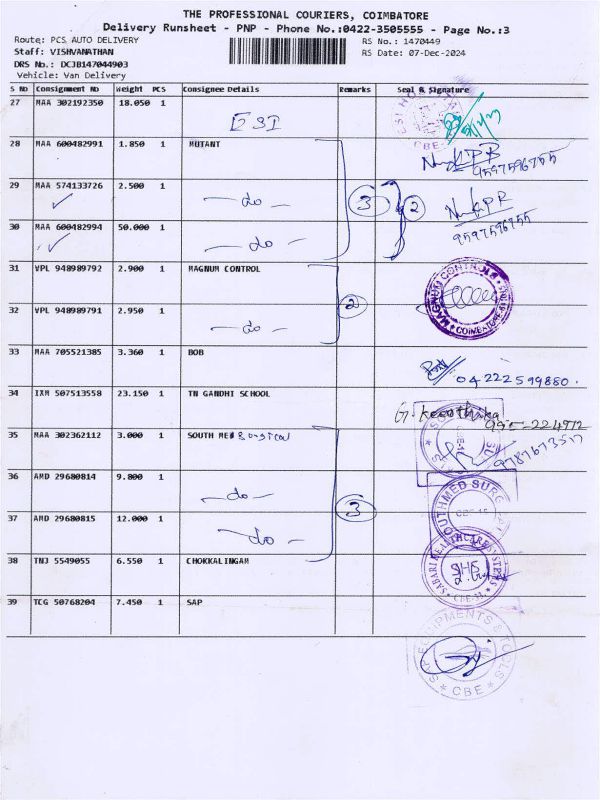 THE PROFESSIONAL COURIERS, COIMBATORE
Delivery Runsheet - PNP - Phone No.:0422-3505555 - Page No.:3
Route: PCS AUTO DELIVERY
RS No.: 1470449
Staff: VISHVANATHAN
RS Date: 07-Dec-2024
DRS No.: DCJB147044903
Vehicle: Van Delivery
S No Consignment No Weight PCS Consignee Details Remarks Seal & Signature
27 MAA 302192350 18.050 1 ESI
CBE-
28 MAA 600482991 1.850 1 MUTANT
9597596755
29 MAA 574133726 2.500 1 - do - 3 2
9597596755
30 MAA 600482994 50.000 1 - do -
31 VPL 948989792 2.900 1 MAGNUM CONTROL
MAGNUM CONTROLS
COIMBATORE
2
32 VPL 948989791 2.950 1 - do -
33 MAA 705521385 3.360 1 BOB
04222599880.
34 IXM 507513558 23.150 1 TN GANDHI SCHOOL
G. Keerthika
35 MAA 302362112 3.000 1 SOUTH MED Surgical
9787673517
36 AMD 29680814 9.800 1 - do -
SOUTHMED SURGICAL
3
37 AMD 29680815 12.000 1 - do -
38 TNJ 5549055 6.550 1 CHOKKALINGAM
SABARI HEALTHCARE SYSTEMS
SHS
39 TCG 50768204 7.450 1 SAP
EQUIPMENTS & TOOLS
CBE